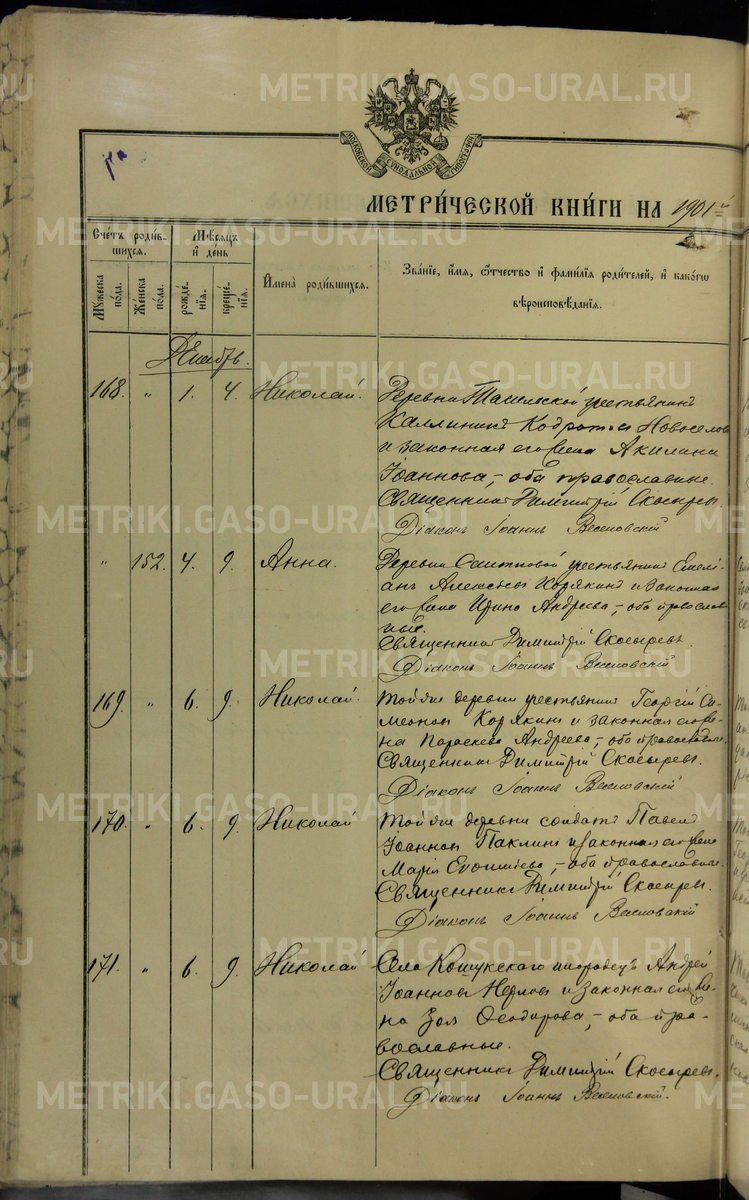 МОСКОВСКОЙ СѴНОДАЛЬНОЙ ТИПОГРАФІИ
МЕТРИ́ЧЕСКОЙ КНИ́ГИ НА 1901й
Сче́тъ роди́в-
шихся.
Мѣ́сяцъ
и҆ де́нь
Му́жеска по́ла.
Же́нска по́ла.
рожде́нїѧ.
креще́нїѧ.
И҆мена̀ роди́вшихся.
Зва́нїе, и҆́мѧ, ѻ҆́тчество и҆ фами́лїѧ роди́телей, и҆ како́гѡ
вѣроисповѣ́данїѧ.
Декабрь.
168. " 1. 4. Николай. Деревни крестьянинъ
Каллиникъ Кодратовъ Новоселов
и законная его жена Акилина
Іоаннова, – оба православные.
Священникъ Димитрій Скосыревъ.
Діаконъ Іоаннъ Веселовскій
" 152. 4. 9. Анна. Деревни крестьянинъ Емелі-
анъ Алексѣевъ Корякинъ и законная
его жена Ирина Андреева, – оба православ-
ные.
Священникъ Димитрій Скосыревъ.
Діаконъ Іоаннъ Веселовскій
169. " 6. 9. Николай. Той же деревни крестьянинъ Георгій Си-
меоновъ Корякинъ и законная его же-
на Параскева Андреева, – оба православные.
Священникъ Димитрій Скосыревъ.
Діаконъ Іоаннъ Веселовскій
170. " 6. 9. Николай Той же деревни солдатъ Павелъ
Іоанновъ Паклинъ и законная его жена
Марія – оба православные.
Священникъ Димитрій Скосыревъ.
Діаконъ Іоаннъ Веселовскій
171. " 6. 9. Николай Села Кошукскаго инородецъ Андрей
Іоанновъ и законная его же-
на Ѳеодорова, – оба пра-
вославные.
Священникъ Димитрій Скосыревъ.
Діаконъ Іоаннъ Веселовскій.
METRIKI.GASO-URAL.RU